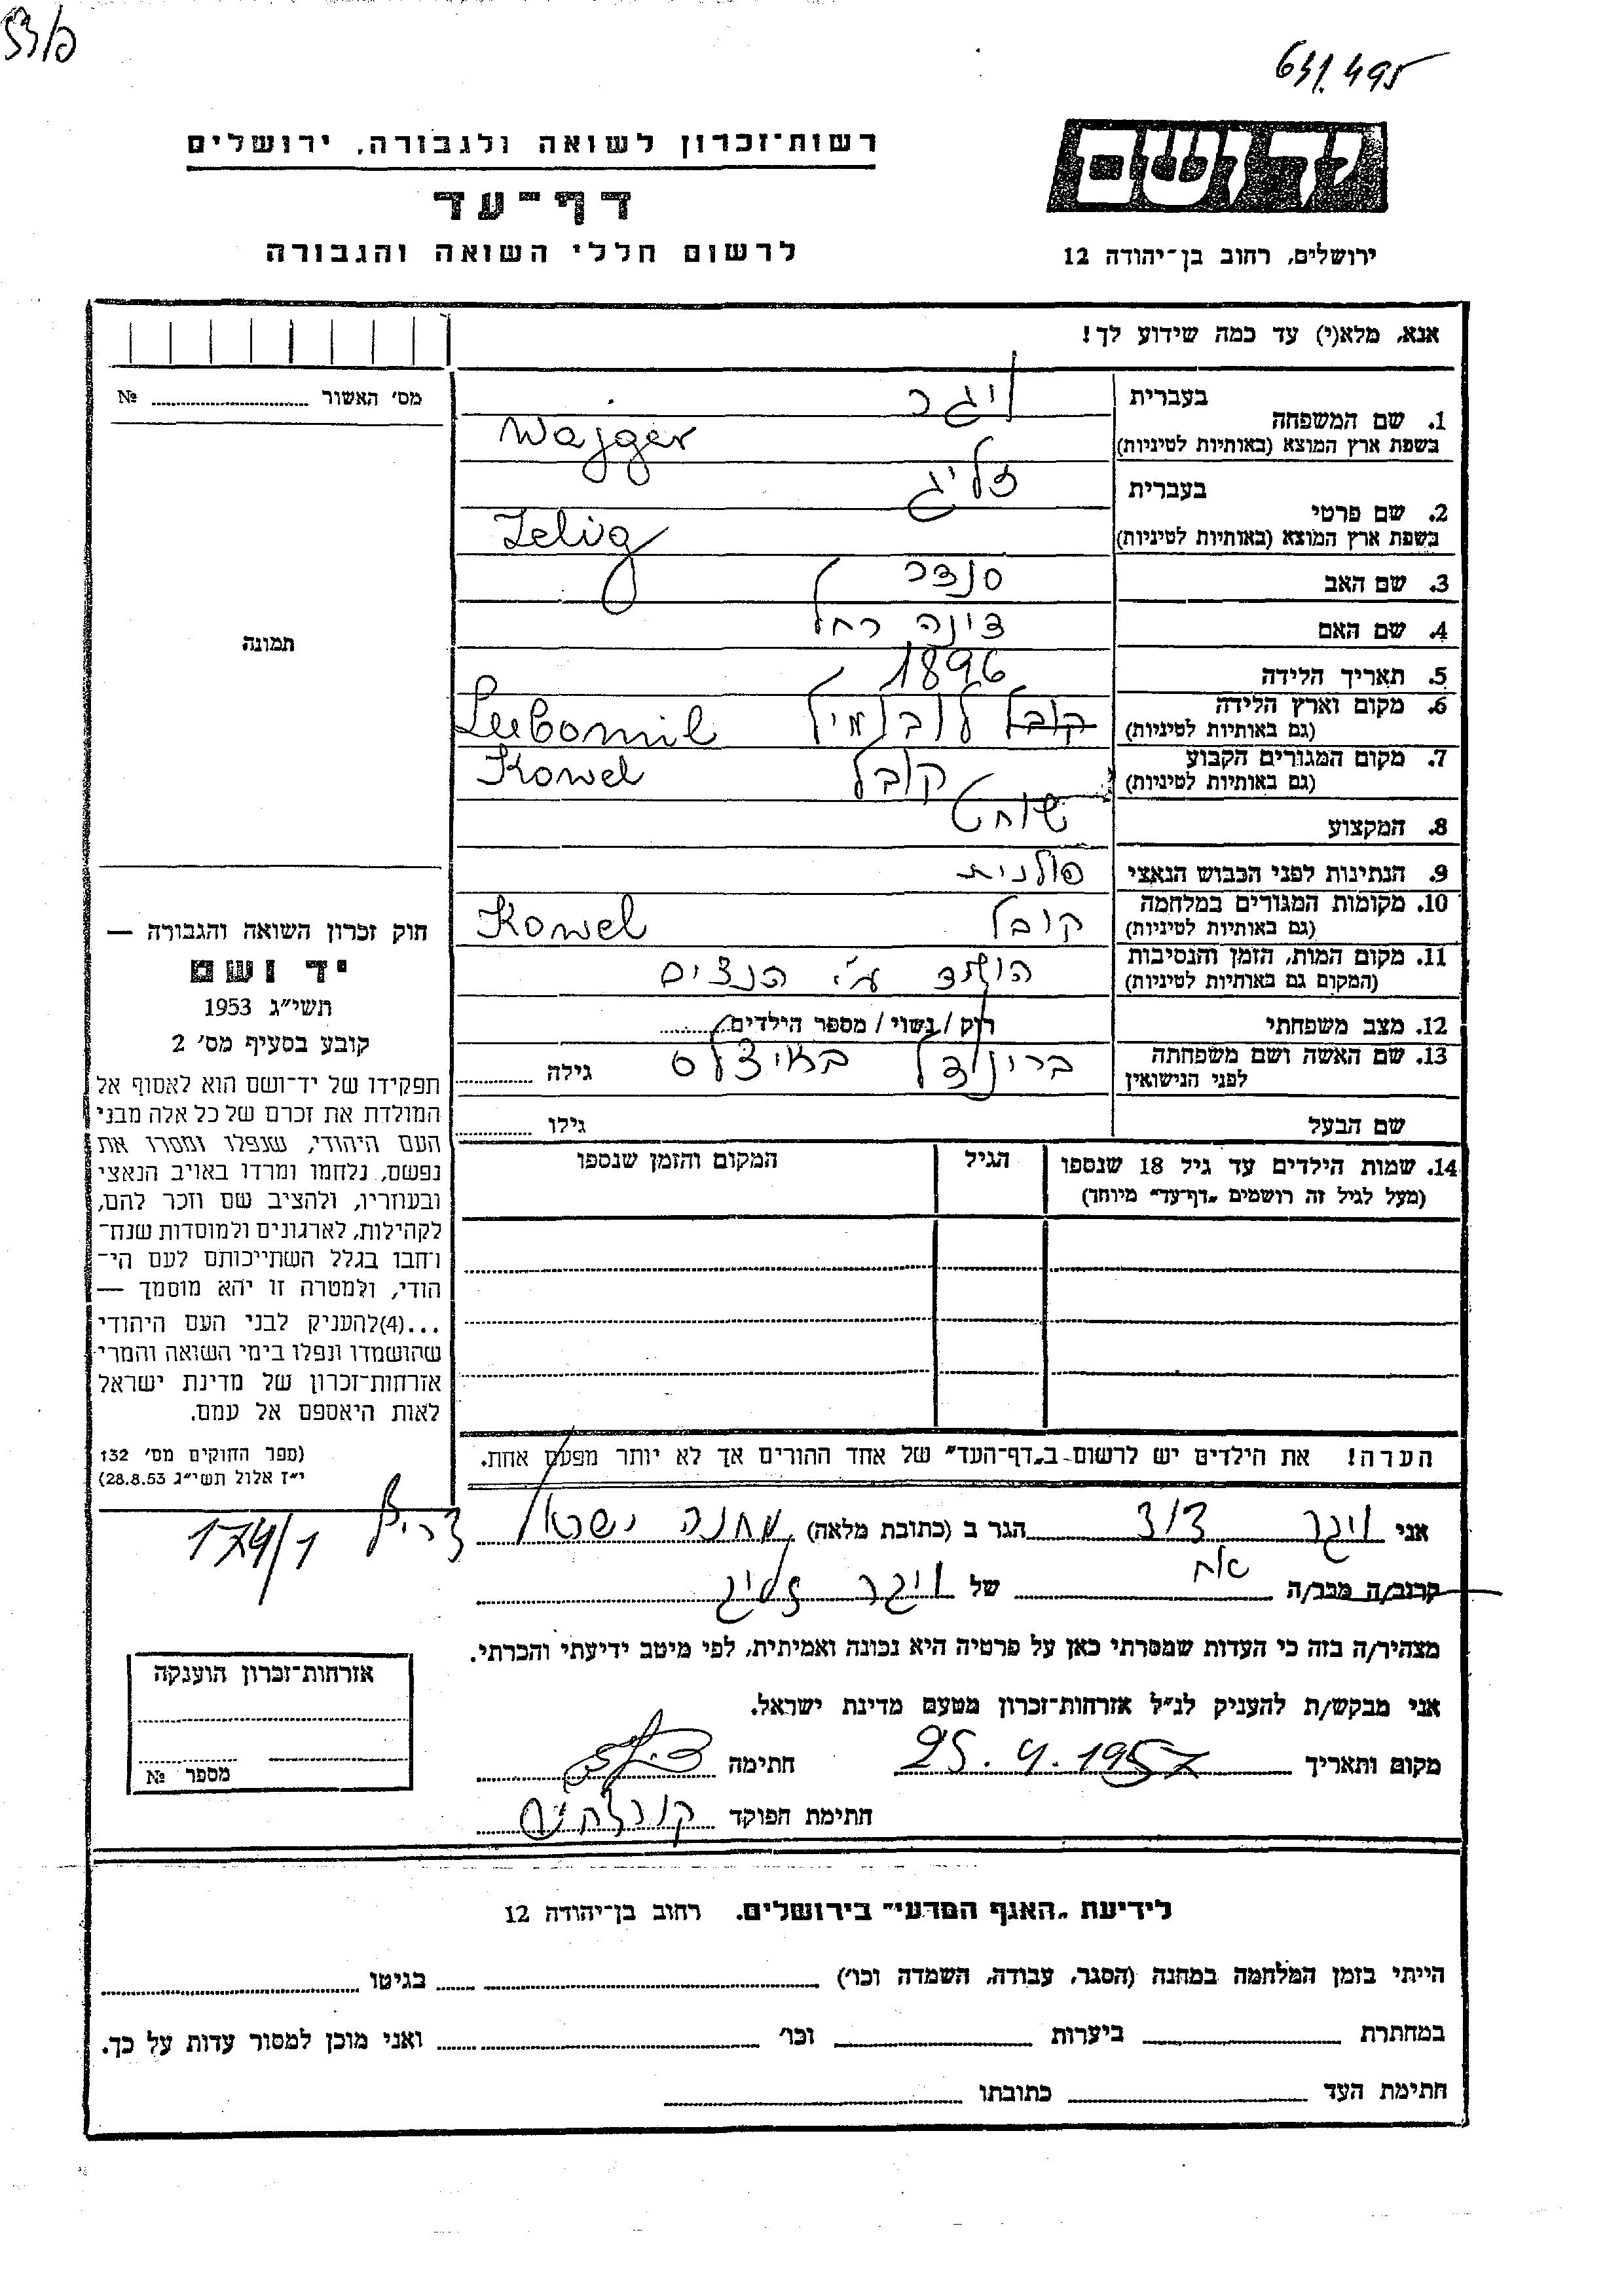 631.495
יד ושם
ירושלים, רחוב בן־יהודה 12
רשות־זכרון לשואה ולגבורה, ירושלים
דף־עד
לרשום חללי השואה והגבורה
אנא, מלא(י) עד כמה שידוע לך!
מס׳ האשור № 
1. שם המשפחה בעברית ויגר
בשפת ארץ המוצא (באותיות לטיניות) Wajger
2. שם פרטי בעברית זליג
בשפת ארץ המוצא (באותיות לטיניות) Zelig
3. שם האב סנדר
4. שם האם דינה רחל
5. תאריך הלידה 1896
6. מקום וארץ הלידה (גם באותיות לטיניות) קובל לובומיל Lubomil
7. מקום המגורים הקבוע (גם באותיות לטיניות) קובל Kowel
8. המקצוע שוחט
9. הנתינות לפני הכבוש הנאצי פולנית
10. מקומות המגורים במלחמה (גם באותיות לטיניות) קובל Kowel
11. מקום המות, הזמן והנסיבות (המקום גם באותיות לטיניות) הושמד ע״י הנצים
12. מצב משפחתי רוק / נשוי / מספר הילדים
13. שם האשה ושם משפחתה לפני הנישואין ברונדל גילה
שם הבעל גילו
14. שמות הילדים עד גיל 18 שנספו הגיל המקום והזמן שנספו
(מעל לגיל זה רושמים „דף־עד״ מיוחד)
הערה! את הילדים יש לרשום ב„דף־העד״ של אחד ההורים אך לא יותר מפעם אחת.
תמונה
חוק זכרון השואה והגבורה —
יד ושם
תשי״ג 1953
קובע בסעיף מס׳ 2
תפקידו של יד־ושם הוא לאסוף אל
המולדת את זכרם של כל אלה מבני
העם היהודי, שנפלו ומסרו את
נפשם, נלחמו ומרדו באויב הנאצי
ובעוזריו, ולהציב שם וזכר להם,
לקהילות, לארגונים ולמוסדות שנח־
רחבו בגלל השתייכותם לעם הי־
הודי, ולמטרה זו יהא מוסמך —
...(4)להעניק לבני העם היהודי
שהושמדו ונפלו בימי השואה והמרי
אזרחות־זכרון של מדינת ישראל
לאות היאספם אל עמם.
(ספר החוקים מס׳ 132
י״ז אלול תשי״ג 28.8.53)
אני ויגר דוד הגר ב (כתובת מלאה) מחנה ישראל צריף 174/1
קרוב/ה מכר/ה אח של ויגר זליג
מצהיר/ה בזה כי העדות שמסרתי כאן על פרטיה היא נכונה ואמיתית, לפי מיטב ידיעתי והכרתי.
אני מבקש/ת להעניק לנ״ל אזרחות־זכרון מטעם מדינת ישראל.
מקום ותאריך 25.4.1957 חתימה
חתימת הפוקד
אזרחות־זכרון הוענקה
מספר №
לידיעת „האגף המדעי״ בירושלים, רחוב בן־יהודה 12
הייתי בזמן המלחמה במחנה (הסגר, עבודה, השמדה וכו׳) בגיטו
במחתרת ביערות וכו׳ ואני מוכן למסור עדות על כך.
חתימת העד כתובתו